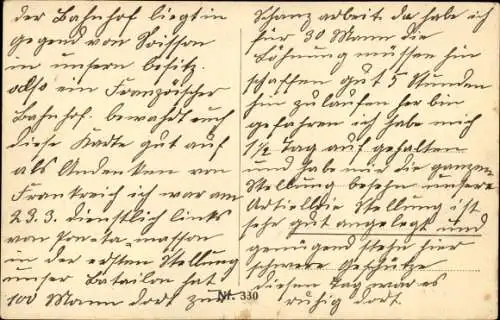 der Bahnhof liegt in
gegend von Soisson
in unsern besitz.
also ein Französischer
Bahnhof. bewahrt euch
diese Karte gut auf
als Andenken von
Frankreich ich war am
23.3. dienstlich links
von Pon-ta-masson
in der ersten Stellung
unser Batailon hat
100 Mann dort zum
Schanz arbeit da habe ich
für 30 Mann die
Löhnung müssen hin
schaffen gut 5 Stunden
hin zu laufen her bin
gefahren ich habe mich
1½ Tag auf gehalten
und habe mir die ganzen
Stellung besehn unsere
Artiellie Stellung ist
sehr gut angelegt und
genügend stehn hier
schwere Geschütze
diesen Tag war es
ruhig dort.
Nr. 330